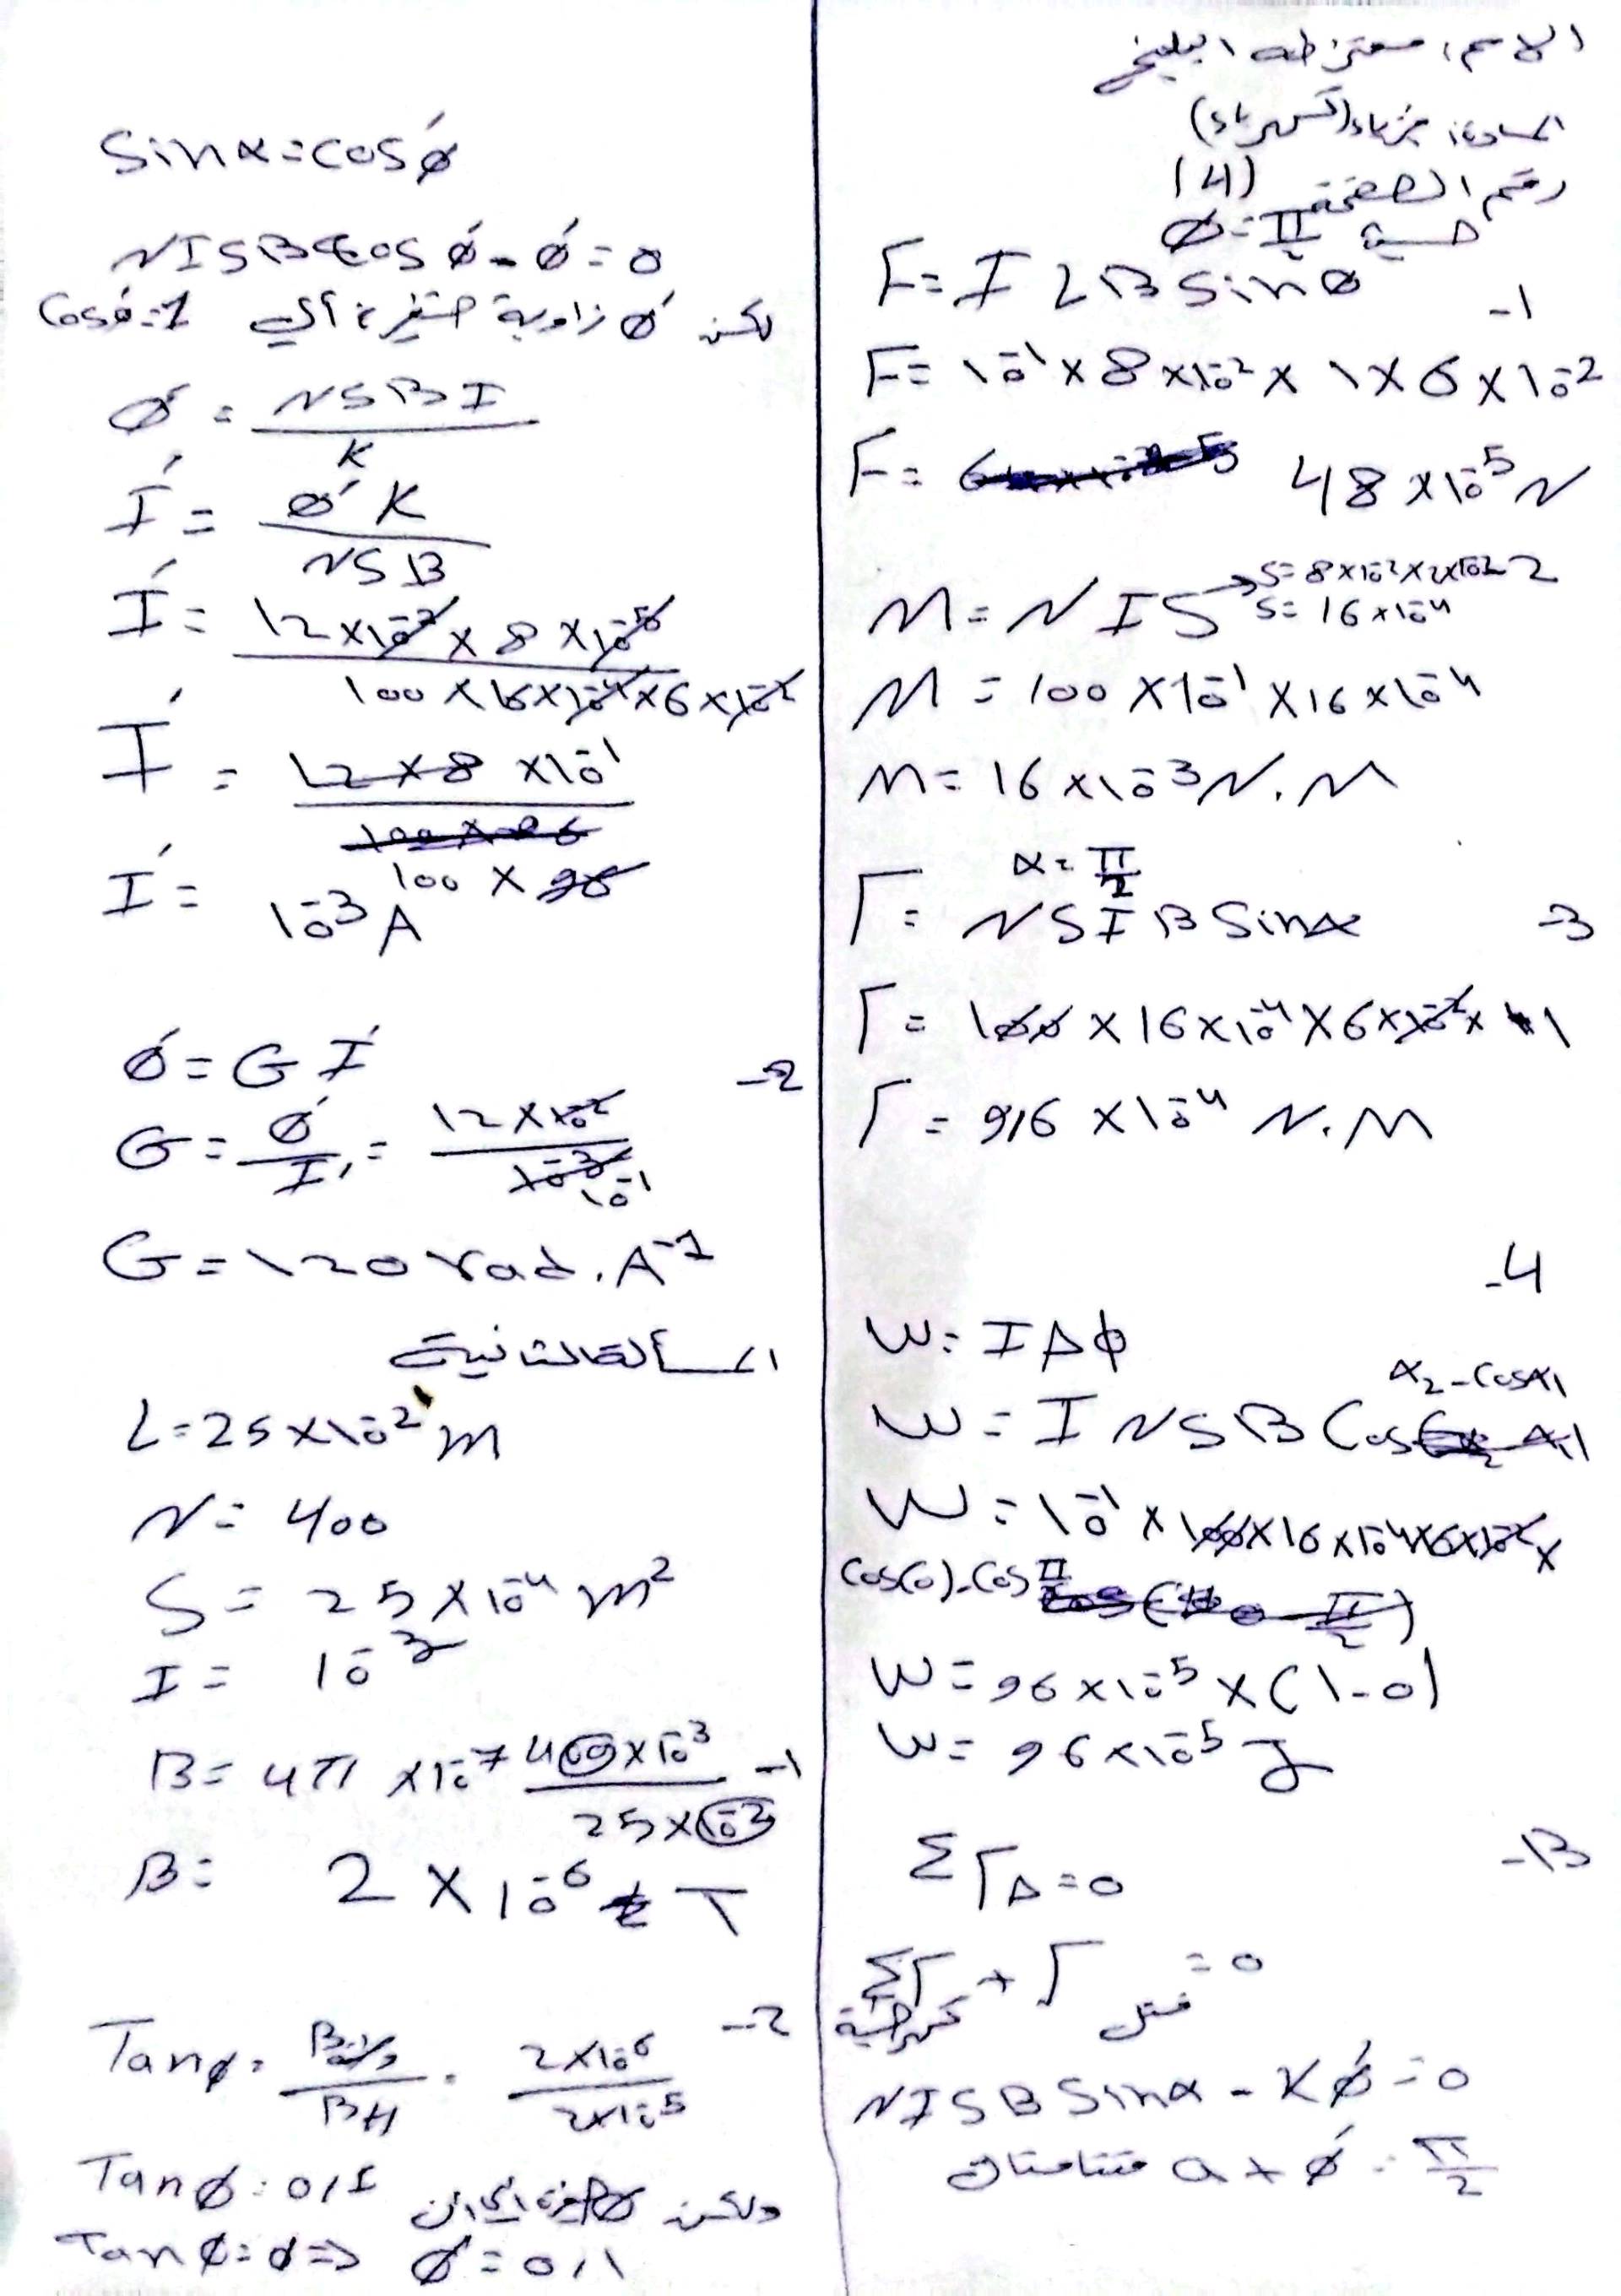 الاسم: معتز طه البليخ
المادة: فيزياء (كهرباء)
رقم الصفحة (4)
حيث Ø = π/2
F = I L B sin Ø -1
F = 10⁻¹ × 8 × 10⁻² × 1 × 6 × 10⁻²
F = 48 × 10⁻⁵ N
M = N I S → S = 8 × 10⁻² × 2 × 10⁻² -2
S = 16 × 10⁻⁴
M = 100 × 10⁻¹ × 16 × 10⁻⁴
M = 16 × 10⁻³ N.M
α = π/2
Γ = N S I B Sin α -3
Γ = 100 × 16 × 10⁻⁴ × 6 × 10⁻² × 1
Γ = 9,6 × 10⁻⁴ N.M
-4
W = I Δϕ
W = I N S B Cos α₂ - Cos α₁
W = 10⁻¹ × 100 × 16 × 10⁻⁴ × 6 × 10⁻² ×
Cos(0) - Cos π/2
W = 96 × 10⁻⁵ × (1 - 0)
W = 96 × 10⁻⁵ J
ΣΓΔ = 0 -B
ΣΓ كهرطيسية + Γ فتل = 0
N I S B Sin α - K Ǿ = 0
α + Ǿ = π/2 متتامتان
Sin α = cos Ǿ
N I S B cos Ǿ - Ǿ = 0
لكن Ǿ زاوية صغيرة أي Cos Ǿ = 1
Ǿ = NSBI / K
I′ = Ǿ K / NSB
I′ = 12 × 10⁻² × 8 × 10⁻⁵ / 100 × 16 × 10⁻⁴ × 6 × 10⁻²
I′ = 12 × 8 × 10⁻¹ / 100 × 96
I′ = 10⁻³ A
Ǿ = G I′ -2
G = Ǿ / I′ = 12 × 10⁻² / 10⁻³
10⁻¹
G = 120 rad.A⁻¹
المسألة الثانية
L = 25 × 10⁻² m
N = 400
S = 25 × 10⁻⁴ m²
I = 10⁻³
B = 4π × 10⁻⁷ 400 × 10⁻³ / 25 × 10⁻² -1
B = 2 × 10⁻⁶ T
Tan Ø = B / BH = 2 × 10⁻⁶ / 2 × 10⁻⁵ -2
Tan Ø = 0,1 ولكن Ø صغيرة إذن
Tan Ø = Ø ⇒ Ø = 0,1